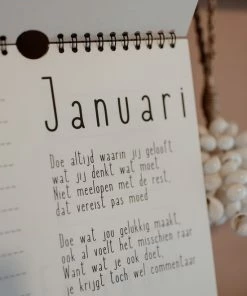 Januari
Doe altijd waarin jij gelooft
wat jij denkt wat moet
Niet meelopen met de rest,
dat vereist pas moed
Doe wat jou gelukkig maakt,
ook al voelt het misschien raar
Want wat je ook doet,
je krijgt toch wel commentaar